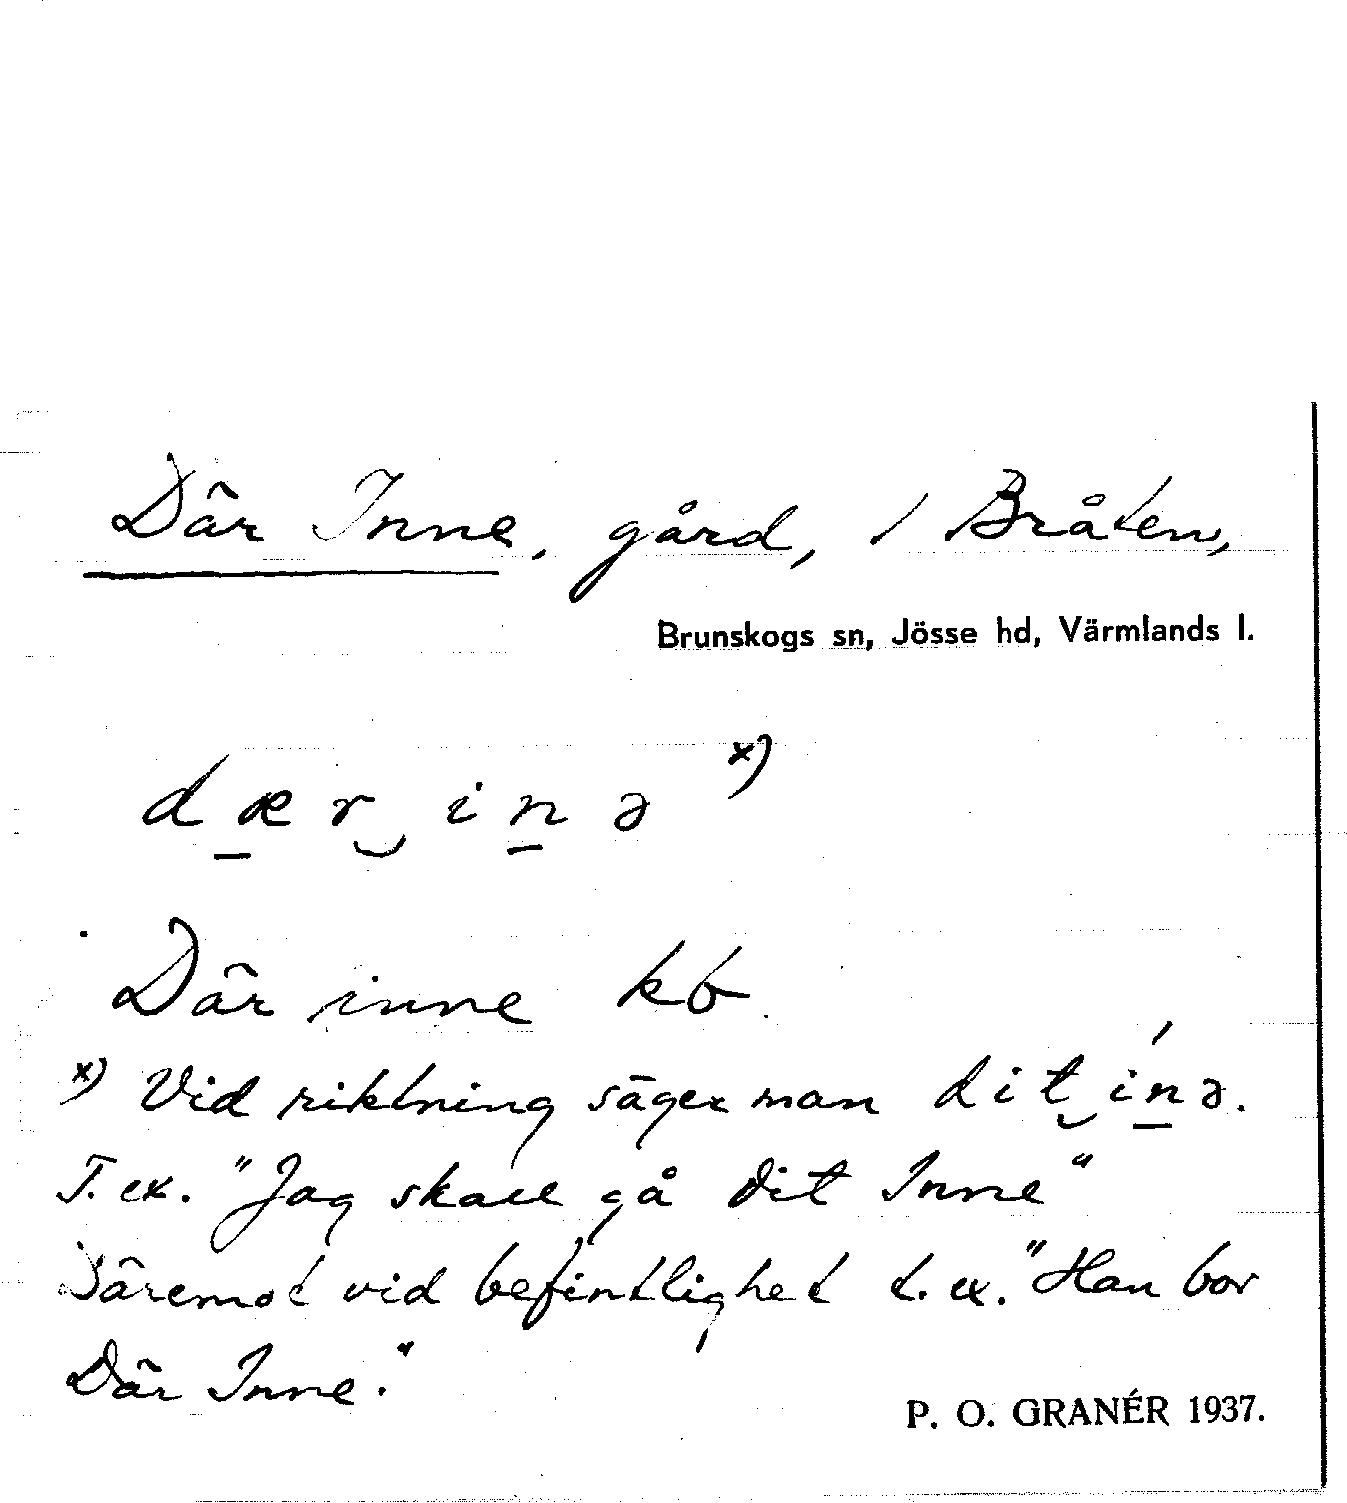 Där Inne, gård, / Bråten,
Brunskogs sn, Jösse hd, Värmlands l.
d æ̲ r‿i n̲ ə x)
Där inne kb
x) Vid riktning säger man d i t‿í n̲ ə.
T. ex. "Jag skall gå dit Inne"
Däremot vid befintlighet t. ex. "Han bor
Där Inne."
P. O. GRANÉR 1937.